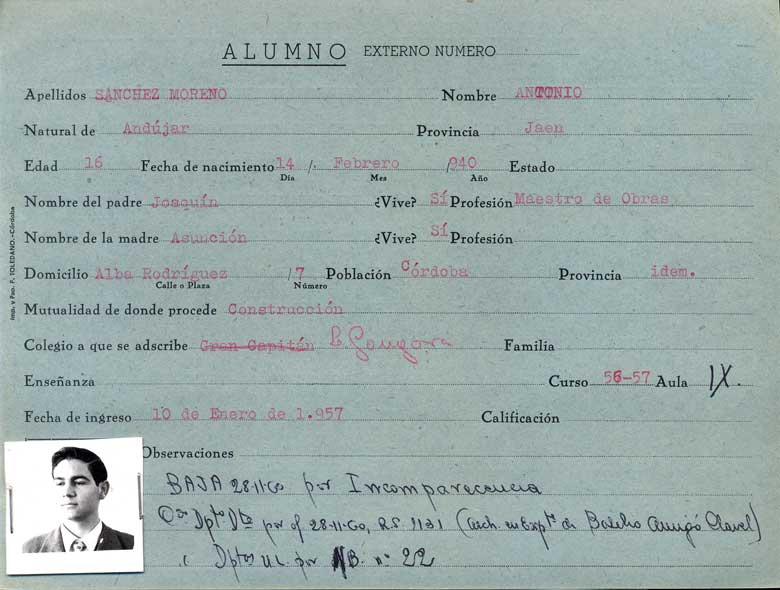 ALUMNO EXTERNO NUMERO
Apellidos SÁNCHEZ MORENO Nombre ANTONIO
Natural de Andújar Provincia Jaen
Edad 16 Fecha de nacimiento 14 / Febrero /940 Estado
Día Mes Año
Nombre del padre Joaquín ¿Vive? Sí Profesión Maestro de Obras
Nombre de la madre Asunción ¿Vive? Sí Profesión
Domicilio Alba Rodríguez /7 Población Córdoba Provincia idem.
Calle o Plaza Número
Mutualidad de donde procede Construcción
Colegio a que se adscribe Gran Capitán L. Gongora Familia
Enseñanza Curso 56-57 Aula IX.
Fecha de ingreso 10 de Enero de 1.957 Calificación
Observaciones
BAJA 28-11-60 por Incomparecencia
Dptº por of 28-11-60, R.S. 1131 (arch. en Exptº de Basilio Clavel)
por NB. nº 22
Imp. y Pap. F. TOLEDANO.-Córdoba